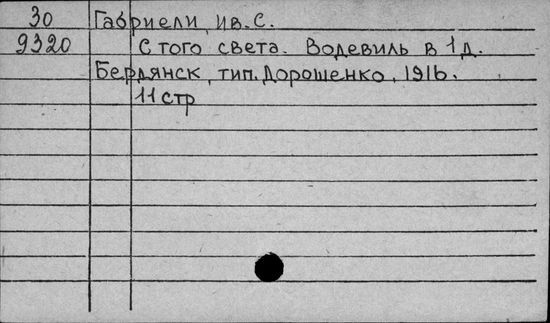 30 Габриели, Ив. С.
9320 С того света. Водевиль в 1 д.
Бердянск, тип. Дорошенко, 1916.
11 стр